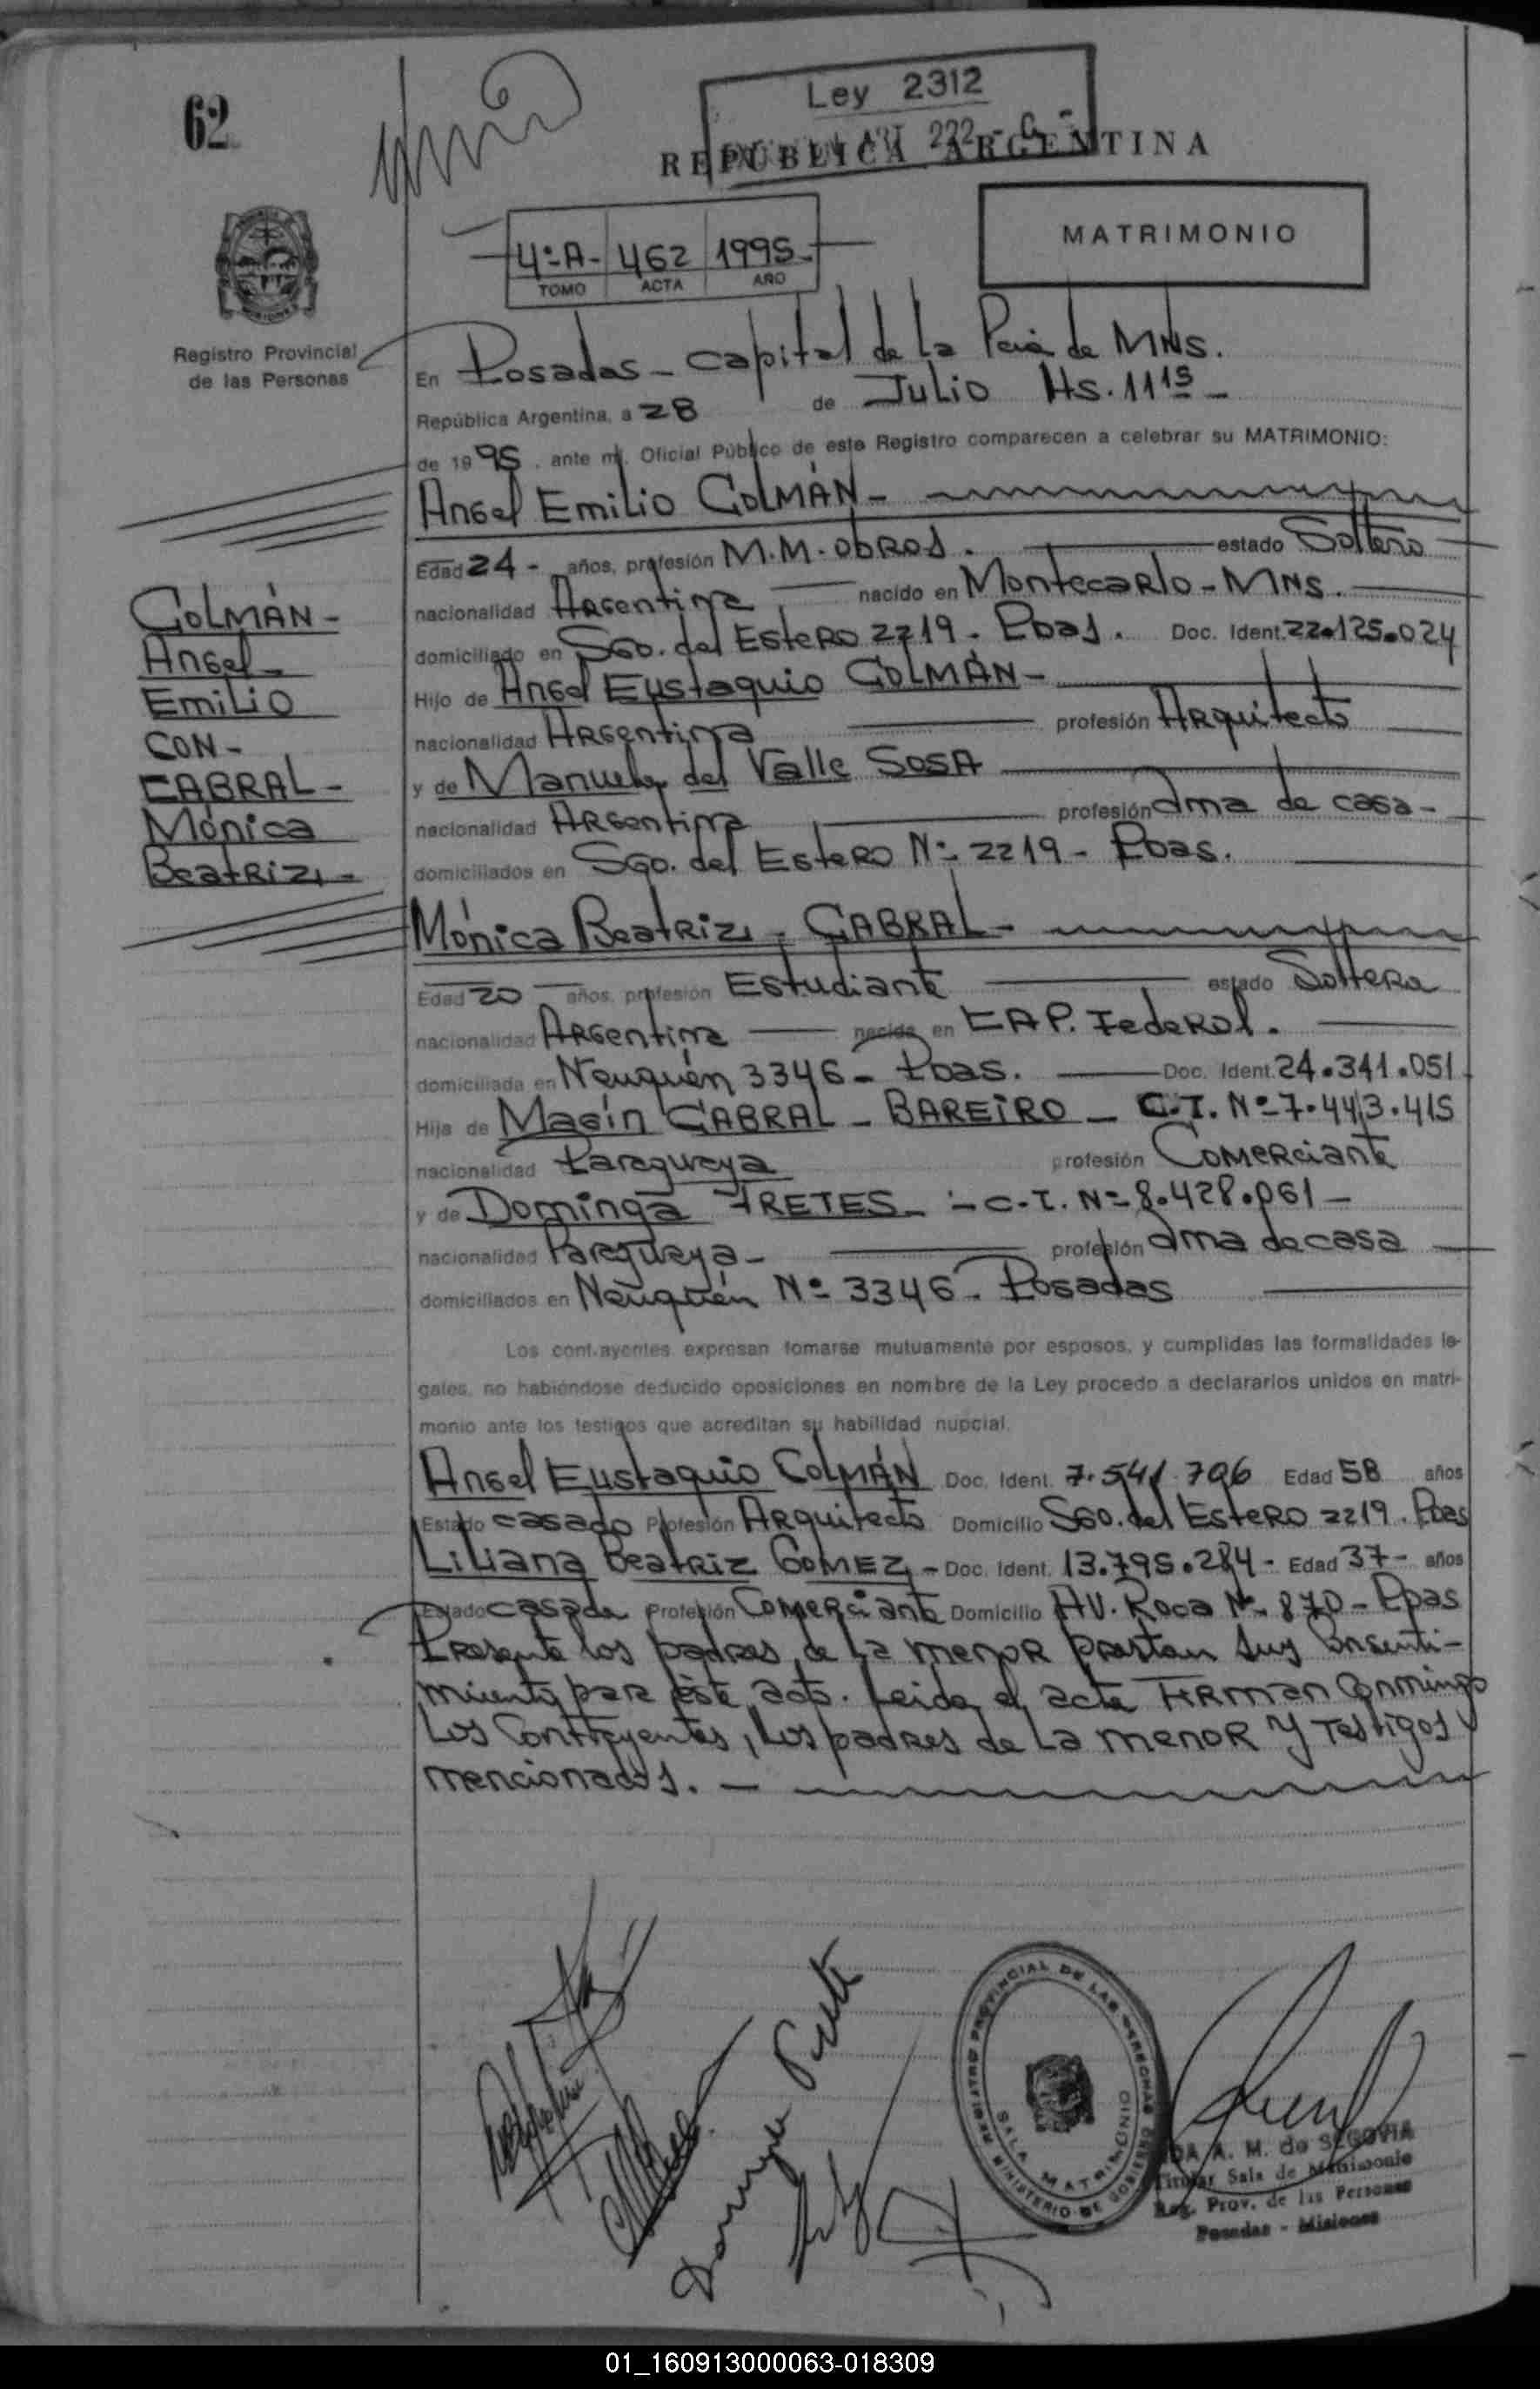 62
Ley 2312
REPUBLICA ARGENTINA
MATRIMONIO
4º-A- 462 1995-
TOMO ACTA AÑO
Registro Provincial
de las Personas
En Posadas - capital de la Pcia de MNS.
República Argentina, a 28 de Julio Hs. 11 15 -
de 1995, ante mí, Oficial Público de este Registro comparecen a celebrar su MATRIMONIO:
Angel Emilio COLMÁN -
Edad 24 - años, profesión M.M. obras. estado Soltero
nacionalidad Argentina nacido en Montecarlo - MNS.
domiciliado en Sgo. del Estero 2219 - Pdas. Doc. Ident. 22.125.024
Hijo de Angel Eustaquio COLMÁN -
nacionalidad Argentina profesión Arquitecto
y de Manuela del Valle SOSA
nacionalidad Argentina profesión Ama de casa -
domiciliados en Sgo. del Estero Nº 2219 - Pdas.
COLMÁN -
Angel -
Emilio
CON -
CABRAL -
Mónica
Beatriz -
Mónica Beatriz - CABRAL -
Edad 20 años, profesión Estudiante estado Soltera
nacionalidad Argentina nacida en CAP. Federal.
domiciliada en Neuquén 3346 - Pdas. Doc. Ident. 24.341.051
Hija de Magín CABRAL - BAREIRO - C.I. Nº 7.443.415
nacionalidad Paraguaya profesión Comerciante
y de Dominga FRETES - - C.I. Nº 8.428.061 -
nacionalidad Paraguaya - profesión Ama de casa
domiciliados en Neuquén Nº 3346 - Posadas
Los contrayentes expresan tomarse mutuamente por esposos, y cumplidas las formalidades le-
gales, no habiéndose deducido oposiciones en nombre de la Ley procedo a declararlos unidos en matri-
monio ante los testigos que acreditan su habilidad nupcial.
Angel Eustaquio COLMÁN Doc. Ident. 7.541.796 Edad 58 años
Estado casado Profesión Arquitecto Domicilio Sgo. del Estero 2219. Pdas
Liliana Beatriz GOMEZ - Doc. Ident. 13.795.284 - Edad 37 - años
Estado casada Profesión Comerciante Domicilio AV. Roca Nº 870 - Pdas
Presente los padres de la menor prestan sus consenti-
miento para éste acto. Leida el acta FIRMAN conmigo
Los Contrayentes, los padres de La menor y Testigos
mencionados. -
Dominga Frete
REGISTRO PROVINCIAL DE LAS PERSONAS
SALA MATRIMONIO
MINISTERIO DE GOBIERNO
A. M. de SEGOVIA
Titular Sala de Matrimonio
Reg. Prov. de las Personas
Posadas - Misiones
01_160913000063-018309